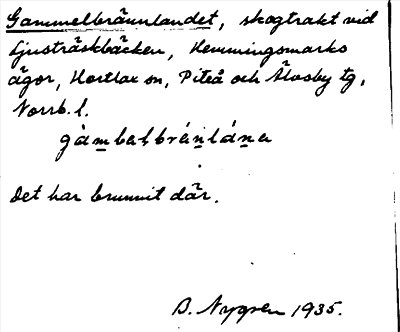 Gammelbrännlandet, skogtrakt vid
Ljusträskbäcken, Hemmingsmarks
ägor, Hortlax sn, Piteå och Älvsby tg,
Norrb. l.
gàmbelbrénlána
Det har brunnit där.
B. Nygren 1935.